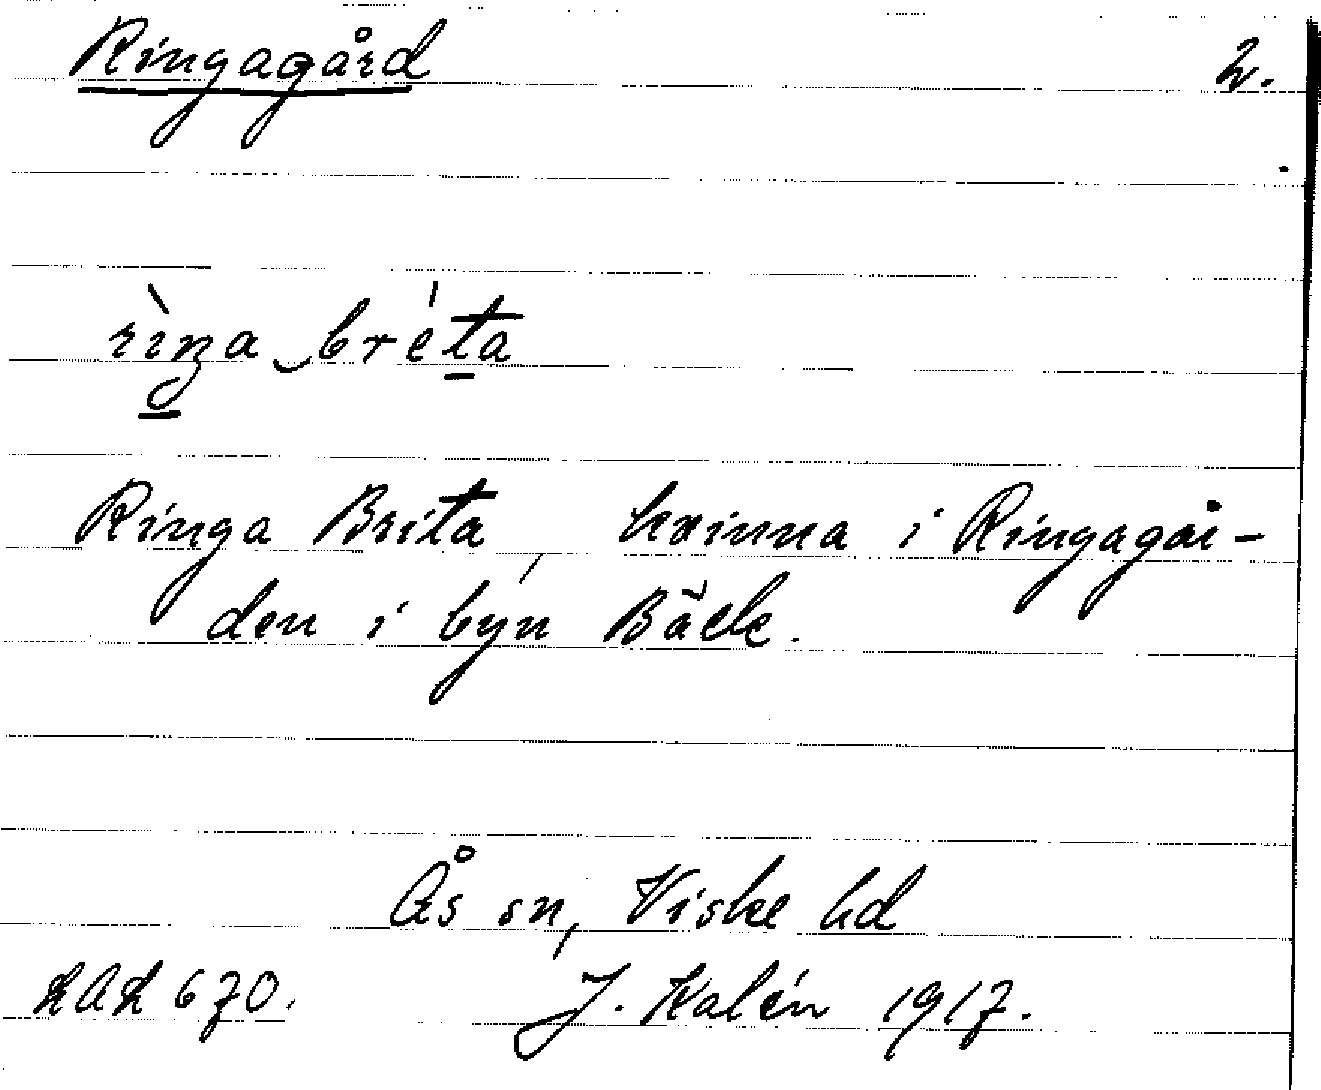 Ringagård 2.
rìŋa‿bréta
Ringa Brita, kvinna i Ringagår-
den i byn Bäck.
Ås sn, Viske hd
LAL 670. J. Kalén 1917.